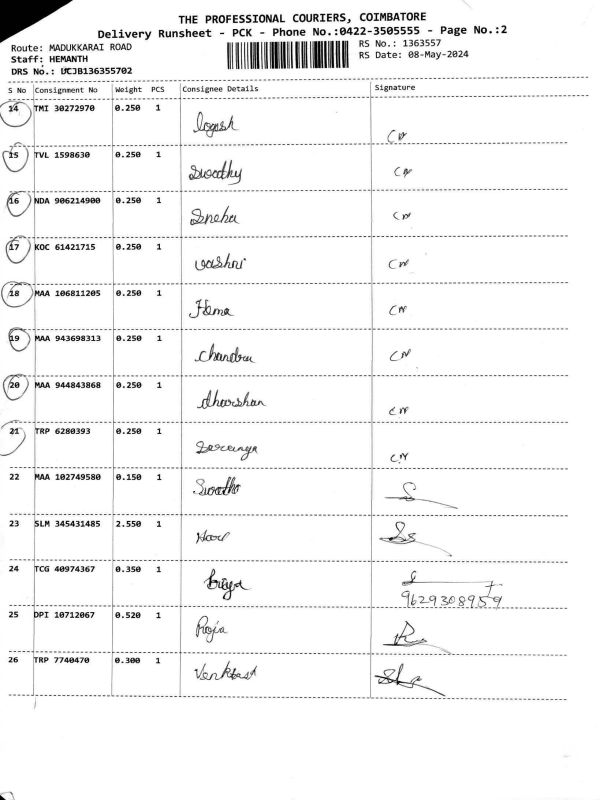 THE PROFESSIONAL COURIERS, COIMBATORE
Delivery Runsheet - PCK - Phone No.:0422-3505555 - Page No.:2
Route: MADUKKARAI ROAD
RS No.: 1363557
Staff: HEMANTH
RS Date: 08-May-2024
DRS No.: UCJB136355702
S No Consignment No Weight PCS Consignee Details Signature
14 TMI 30272970 0.250 1
logesh
CN
15 TVL 1598630 0.250 1
Swathy CN
16 NDA 906214900 0.250 1
Sneha CN
17 KOC 61421715 0.250 1
CN
18 MAA 106811205 0.250 1
Hema CN
19 MAA 943698313 0.250 1
chandru CN
20 MAA 944843868 0.250 1
dharshan
CN
21 TRP 6280393 0.250 1
CN
22 MAA 102749580 0.150 1
23 SLM 345431485 2.550 1
24 TCG 40974367 0.350 1
Priya
9629308959
25 DPI 10712067 0.520 1
Roja
26 TRP 7740470 0.300 1